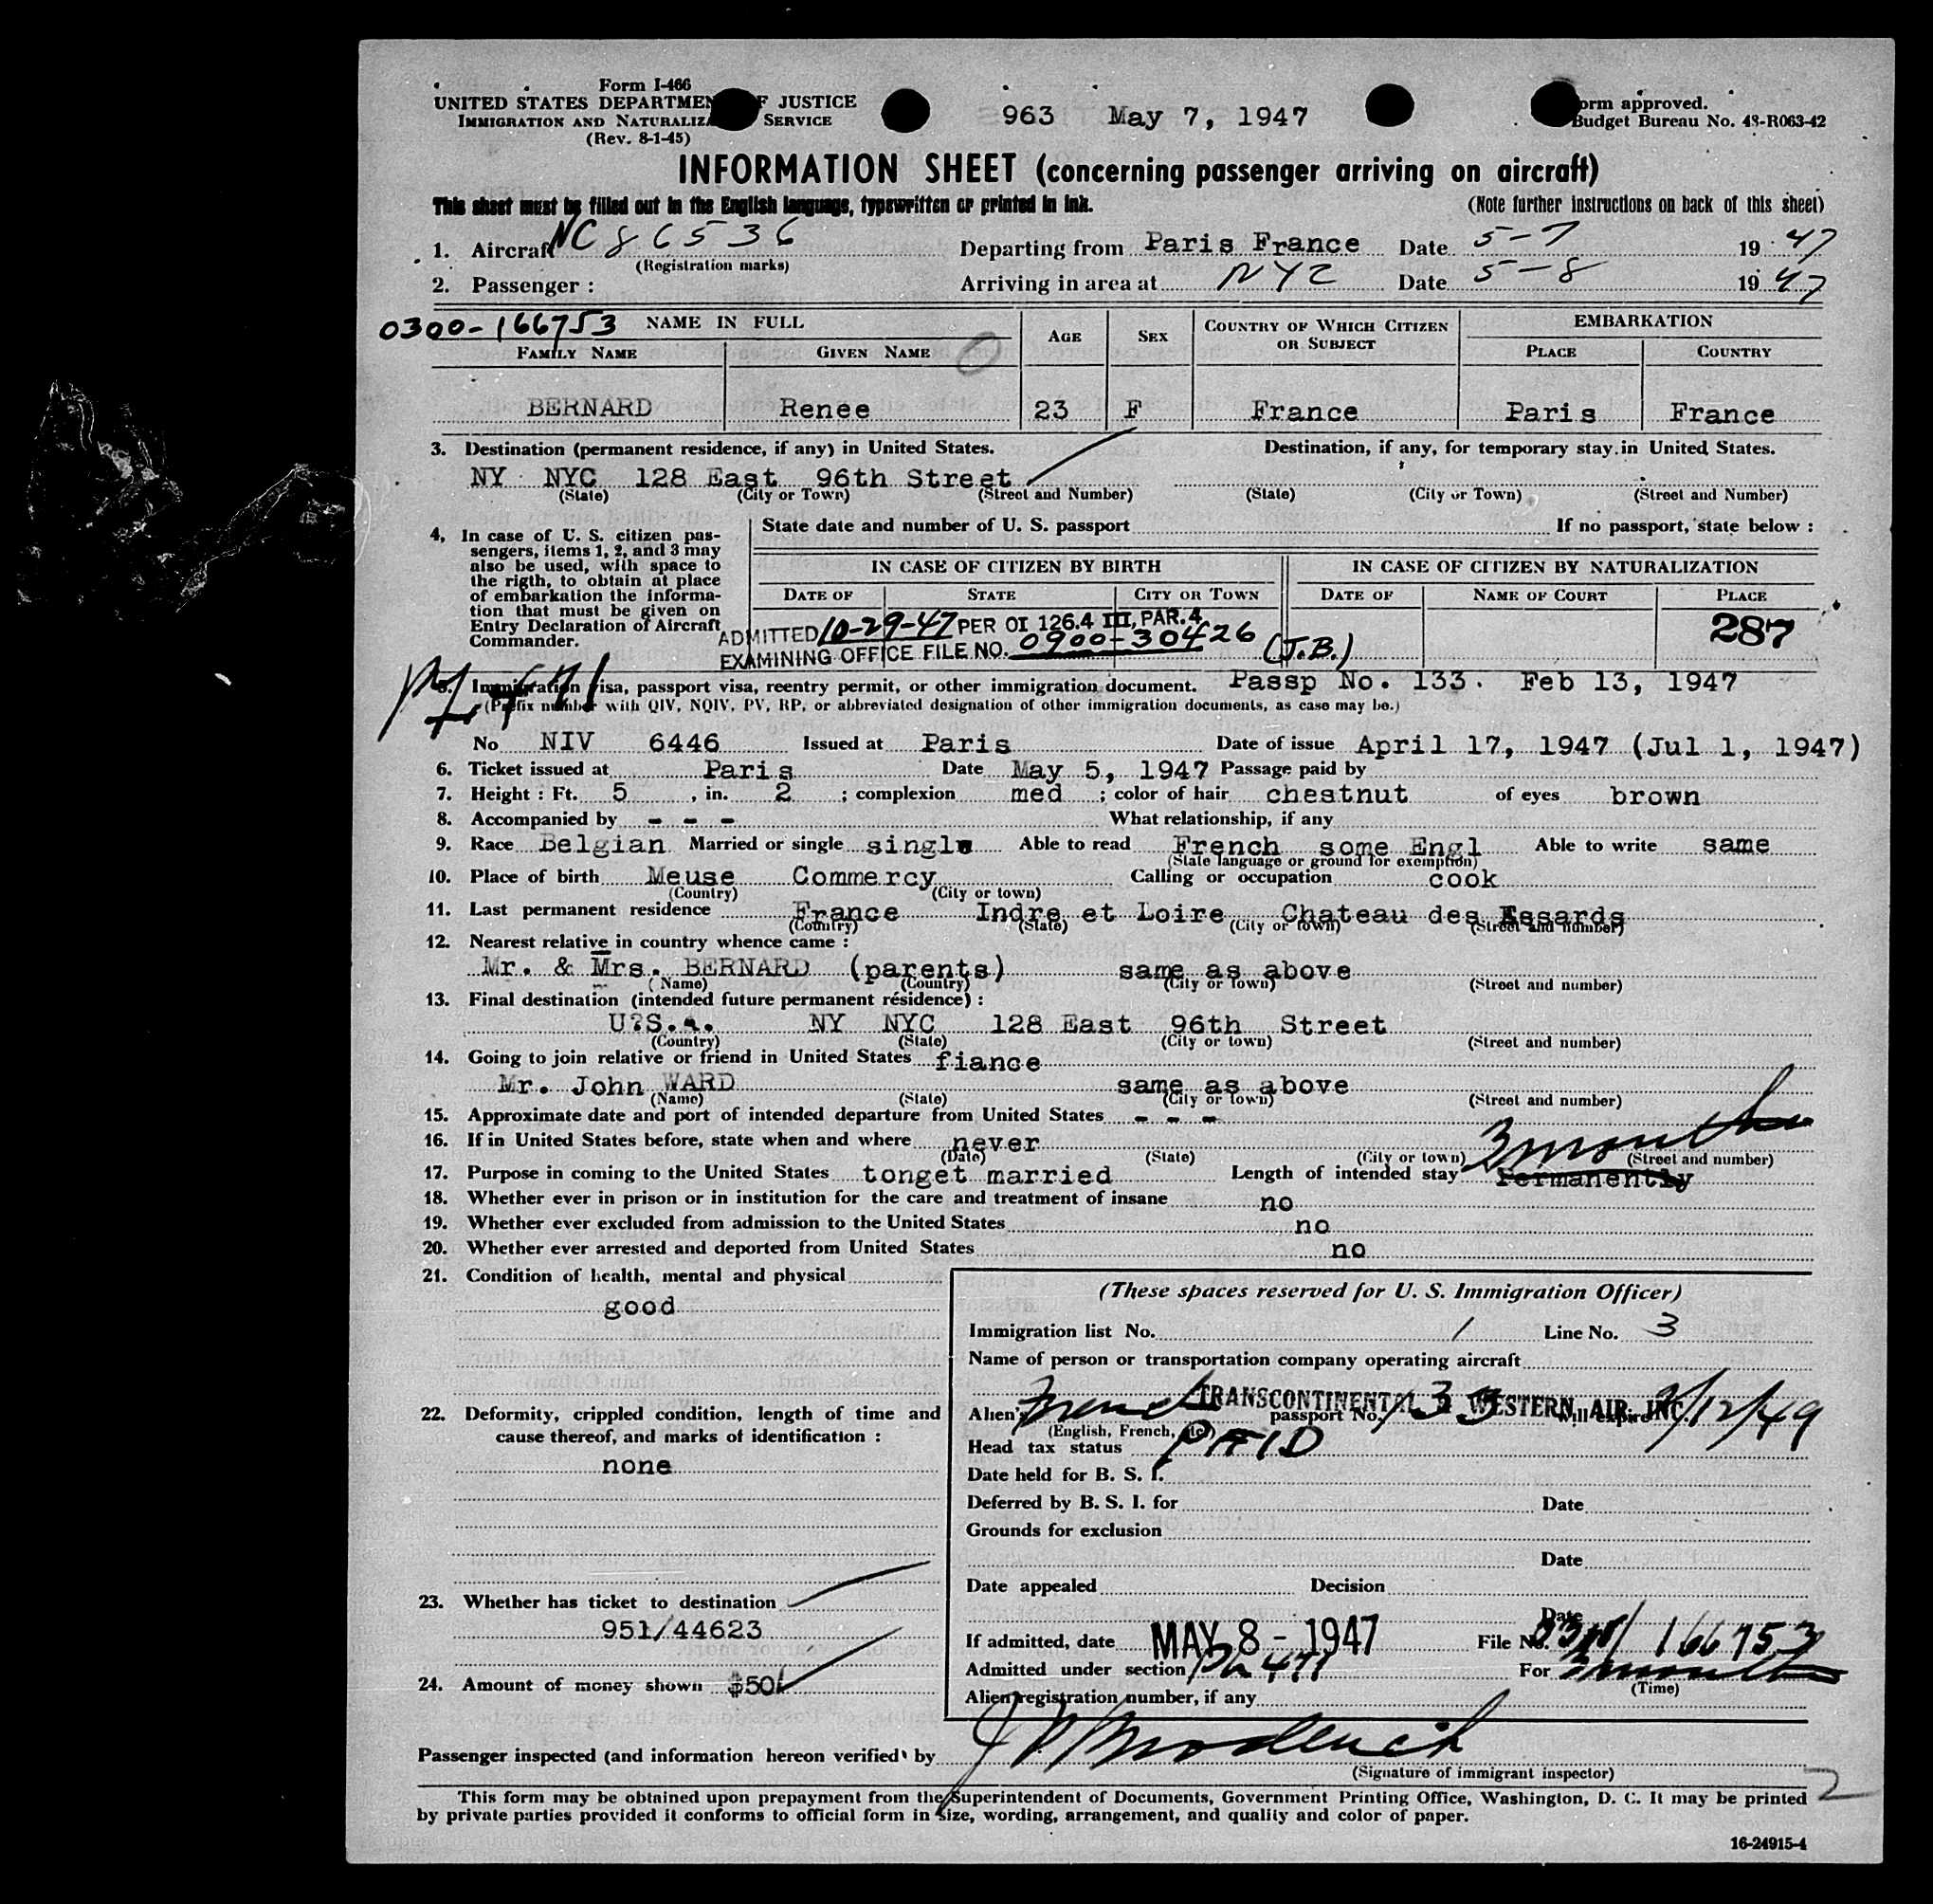 Form I-466
UNITED STATES DEPARTMEN F JUSTICE
IMMIGRATION AND NATURALIZA SERVICE
(Rev. 8-1-45)
963 May 7, 1947
orm approved.
Budget Bureau No. 43-R063-42
INFORMATION SHEET (concerning passenger arriving on aircraft)
This sheet must be filled out in the English language, typewritten or printed in ink. (Note further instructions on back of this sheet)
1. Aircraft NC 86536 Departing from Paris France Date 5-7 19 47
(Registration marks)
2. Passenger : Arriving in area at NYC Date 5-8 19 47
0300-166753 NAME IN FULL AGE SEX COUNTRY OF WHICH CITIZEN OR SUBJECT EMBARKATION
FAMILY NAME GIVEN NAME PLACE COUNTRY
BERNARD Renee 23 F France Paris France
3. Destination (permanent residence, if any) in United States. Destination, if any, for temporary stay in United States.
NY NYC 128 East 96th Street
(State) (City or Town) (Street and Number) (State) (City or Town) (Street and Number)
4, In case of U. S. citizen pas-
sengers, items 1, 2, and 3 may
also be used, with space to
the rigth, to obtain at place
of embarkation the informa-
tion that must be given on
Entry Declaration of Aircraft
Commander.
State date and number of U. S. passport If no passport, state below :
IN CASE OF CITIZEN BY BIRTH IN CASE OF CITIZEN BY NATURALIZATION
DATE OF STATE CITY OR TOWN DATE OF NAME OF COURT PLACE
287
ADMITTED 10-29-47 PER OI 126.4 III, PAR. 4
EXAMINING OFFICE FILE NO. 0900-30426 (J.B.)
5. Immigration visa, passport visa, reentry permit, or other immigration document. Passp No. 133. Feb 13, 1947
(Prefix number with QIV, NQIV, PV, RP, or abbreviated designation of other immigration documents, as case may be.)
No NIV 6446 Issued at Paris Date of issue April 17, 1947 (Jul 1, 1947)
6. Ticket issued at Paris Date May 5, 1947 Passage paid by
7. Height : Ft. 5 , in. 2 ; complexion med ; color of hair chestnut of eyes brown
8. Accompanied by - - - What relationship, if any
9. Race Belgian Married or single single Able to read French some Engl Able to write same
(State language or ground for exemption)
10. Place of birth Meuse Commercy Calling or occupation cook
(Country) (City or town)
11. Last permanent residence France Indre et Loire Chateau des Essards
(Country) (State) (City or town) (Street and number)
12. Nearest relative in country whence came :
Mr. & Mrs. BERNARD (parents) same as above
(Name) (Country) (City or town) (Street and number)
13. Final destination (intended future permanent résidence) :
U?S.A. NY NYC 128 East 96th Street
(Country) (State) (City or town) (Street and number)
14. Going to join relative or friend in United States fiance
Mr. John WARD same as above
(Name) (State) (City or town) (Street and number)
15. Approximate date and port of intended departure from United States - - -
16. If in United States before, state when and where never
(Date) (State) (City or town) (Street and number)
3 months
17. Purpose in coming to the United States tonget married Length of intended stay Permanently
18. Whether ever in prison or in institution for the care and treatment of insane no
19. Whether ever excluded from admission to the United States no
20. Whether ever arrested and deported from United States no
21. Condition of health, mental and physical
good
22. Deformity, crippled condition, length of time and
cause thereof, and marks of identification :
none
23. Whether has ticket to destination
951/44623
24. Amount of money shown $50
(These spaces reserved for U. S. Immigration Officer)
Immigration list No. 1 Line No. 3
Name of person or transportation company operating aircraft
TRANSCONTINENTAL & WESTERN AIR, INC.
Alien's French passport No. 133 will expire 2/12/49
(English, French, etc.)
Head tax status PAID
Date held for B. S. I.
Deferred by B. S. I. for Date
Grounds for exclusion
Date
Date appealed Decision
Date
If admitted, date MAY 8 - 1947 File No. 0300/166753
Admitted under section For 3 months
(Time)
Alien registration number, if any
Passenger inspected (and information hereon verified) by
(Signature of immigrant inspector)
2
This form may be obtained upon prepayment from the Superintendent of Documents, Government Printing Office, Washington, D. C. It may be printed
by private parties provided it conforms to official form in size, wording, arrangement, and quality and color of paper.
16-24915-4